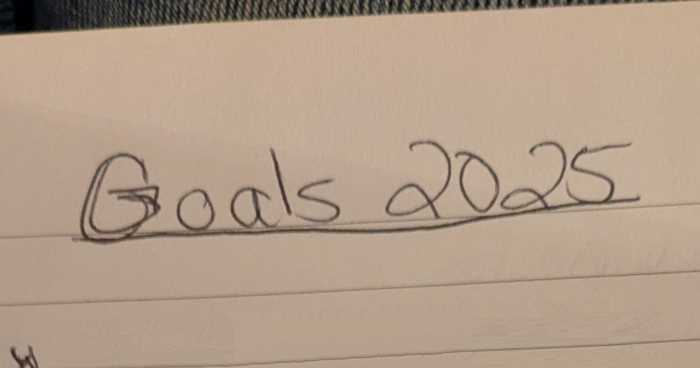 Goals 2025